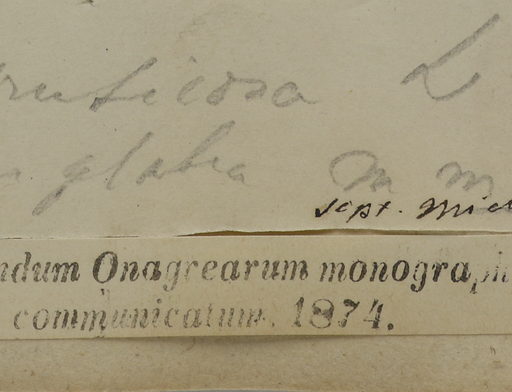 ruticosa L
glabra M m
sept. Mich
ndum Onagrearum monograph
communicatum. 1874.